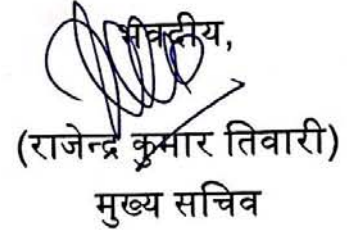 भवदीय,
(राजेन्द्र कुमार तिवारी)
मुख्य सचिव